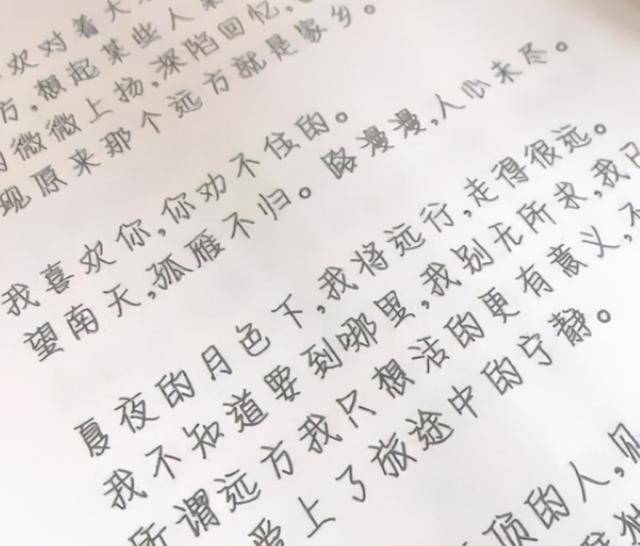 欢对着大
方,想起某些人
微微上扬,深陷回忆,
现原来那个远方就是家乡。
我喜欢你,你劝不住的。
望南天,孤雁不归。路漫漫,人心未尽。
夏夜的月色下,我将远行,走得很远。
我不知道要到哪里,我别无所求,我
所谓远方我只想活的更有意义,不
爱上了旅途中的宁静。
顶的人,见